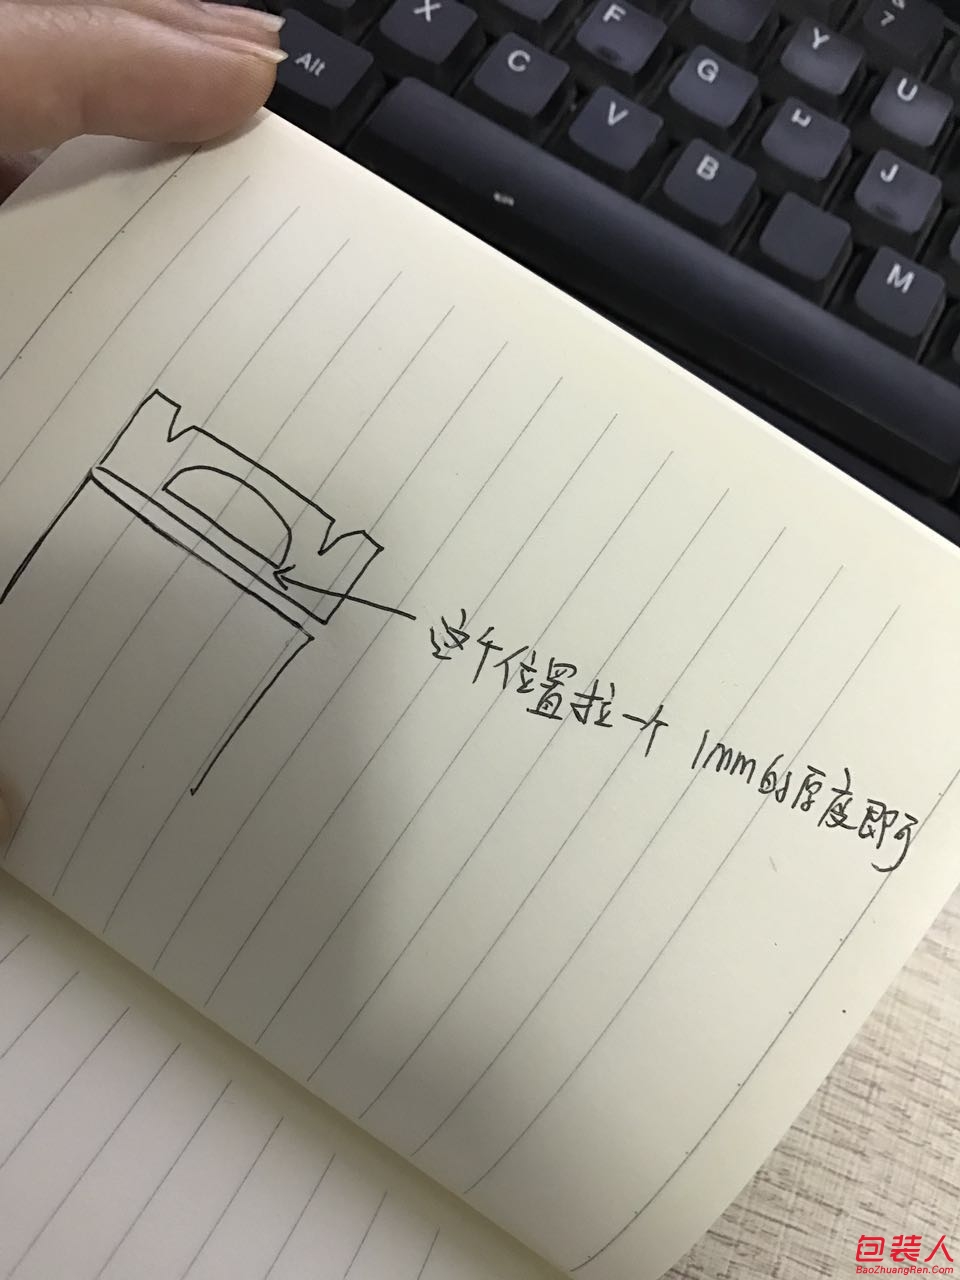 X
F
Y
7
&
Alt
C
G
U
V
H
B
J
M
这个位置拉一个 1mm的厚度即可
包装人
BaoZhuangRen.Com